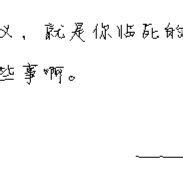 义，就是你临死的
些事啊。